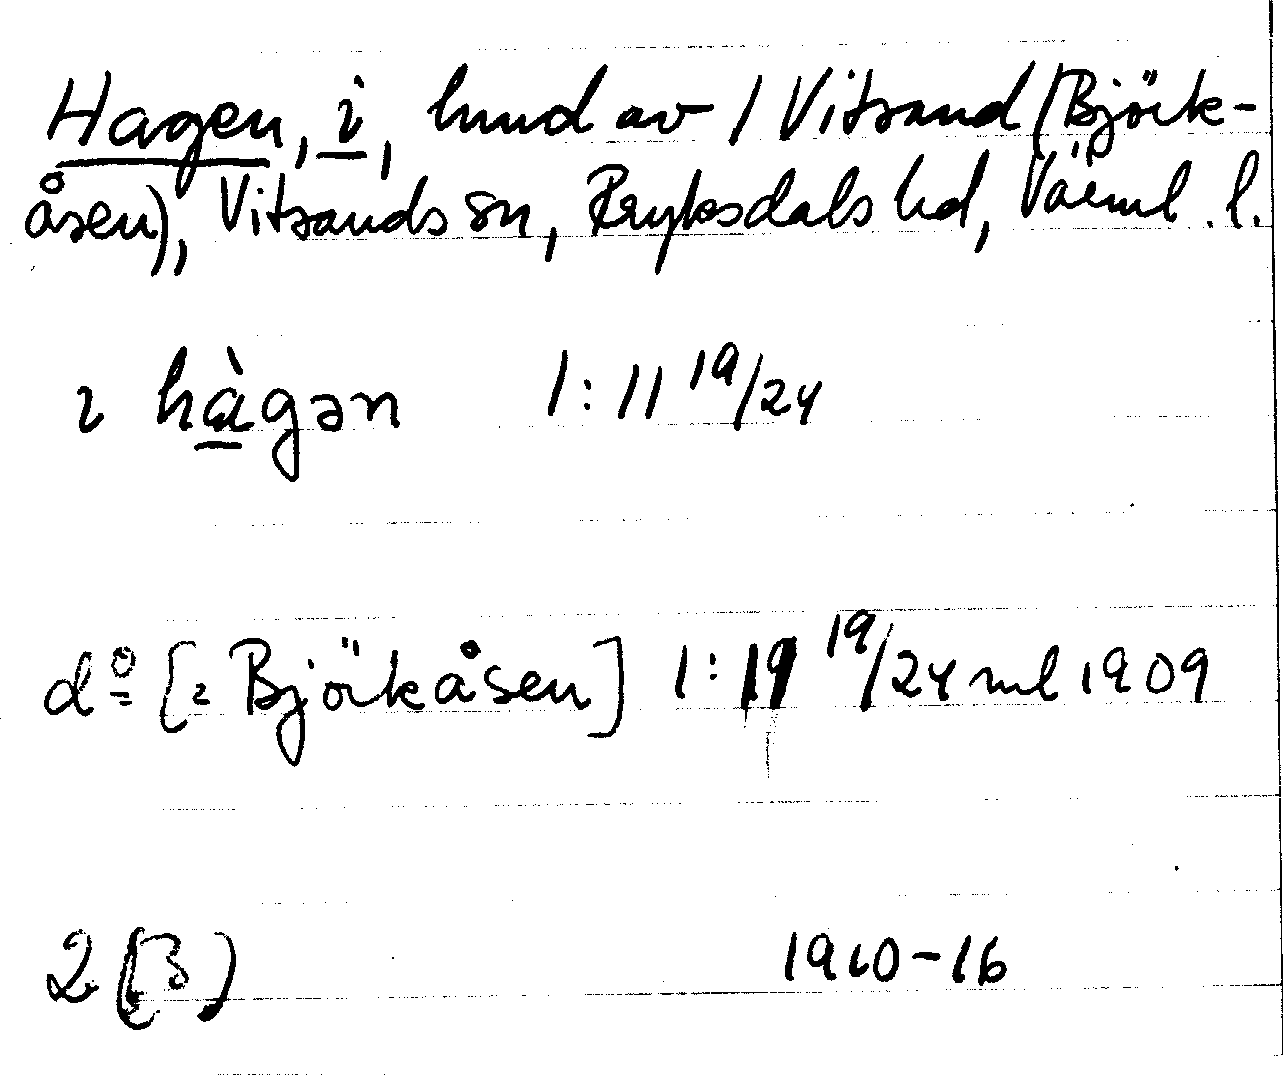 Hagen, i, hmd av 1 Vitsand (Björk-
åsen), Vitsands sn, Fryksdals hd, Värml. l.
ı hàgən 1:11 19/24
do [ı Björkåsen] 1:19 19/24 ml 1909
2 (3) 1910-16